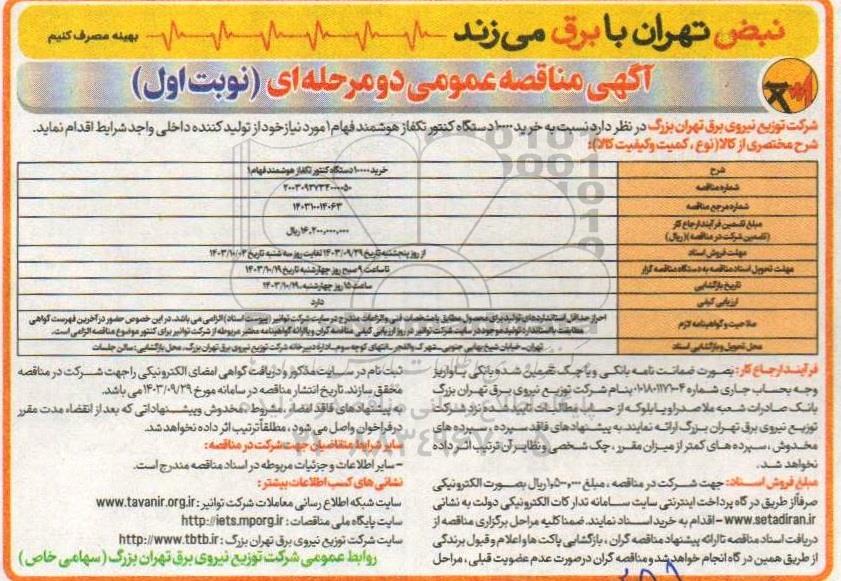 نبض تهران با برق می زند
بهینه مصرف کنیم
آگهی مناقصه عمومی دو مرحله ای (نوبت اول)
شرکت توزیع نیروی برق تهران بزرگ در نظر دارد نسبت به خرید ۱۰۰۰۰ دستگاه کنتور تکفاز هوشمند فهام ۱ مورد نیاز خود از تولید کننده داخلی واجد شرایط اقدام نماید.
شرح مختصری از کالا (نوع ، کمیت وکیفیت کالا):
شرح خرید ۱۰۰۰۰ دستگاه کنتور تکفاز هوشمند فهام ۱
شماره مناقصه ۲۰۰۳۰۹۲۷۳۲۰۰۰۰۵۰
شماره مرجع مناقصه ۱۴۰۳۱۰۰۱۴۰۶۳
مبلغ تضمین فرآیند ارجاع کار (تضمین شرکت در مناقصه) (ریال) ۱۶,۲۰۰,۰۰۰,۰۰۰ ریال
مهلت فروش اسناد از روز پنجشنبه تاریخ ۱۴۰۳/۰۹/۲۹ لغایت روز سه شنبه تاریخ ۱۴۰۳/۱۰/۰۴
مهلت تحویل اسناد مناقصه به دستگاه مناقصه گزار تا ساعت ۹ صبح روز چهارشنبه تاریخ ۱۴۰۳/۱۰/۱۹
تاریخ بازگشایی ساعت ۱۵ روز چهارشنبه ۱۴۰۳/۱۰/۱۹
ارزیابی کیفی دارد
صلاحیت و گواهینامه لازم احراز حداقل استانداردهای تولید برای محصول مطابق با مشخصات فنی و الزامات مندرج در سایت شرکت توانیر (پیوست اسناد) الزامی می باشد. در این خصوص حضور در آخرین فهرست گواهی
مطابقت با استاندارد تولید موجود در سایت شرکت توانیر در روز ارزیابی کیفی مناقصه گران و یا ارائه گواهینامه معتبر مربوطه از شرکت توانیر برای کنتور موضوع مناقصه الزامی است.
محل تحویل و بازگشایی اسناد تهران- خیابان شیخ بهایی جنوبی- شهرک والفجر- انتهای کوچه سوم- اداره دبیرخانه شرکت توزیع نیروی برق تهران بزرگ، محل بازگشایی: سالن جلسات
فرآیند ارجاع کار: بصورت ضمانت نامه بانکی و یا چک تضمین شده بانکی یا واریز
وجه بحساب جاری شماره ۰۱۰۱۸۰۱۱۷۱۰۰۴ بنام شرکت توزیع نیروی برق تهران بزرگ
بانک صادرات شعبه ملاصدرا و یا بلوکه از حساب مطالبات تایید شده نزد شرکت
توزیع نیروی برق تهران بزرگ ارائه نمایند به پیشنهاد های فاقد سپرده ، سپرده های
مخدوش ، سپرده های کمتر از میزان مقرر ، چک شخصی و نظایر آن ترتیب اثر داده
نخواهد شد.
مبلغ فروش اسناد: جهت شرکت در مناقصه ، مبلغ ۱,۵۰۰,۰۰۰ ریال بصورت الکترونیکی
صرفاً از طریق درگاه پرداخت اینترنتی سایت سامانه تدارکات الکترونیکی دولت به نشانی
www.setadiran.ir – اقدام به خرید اسناد نمایند. ضمنا کلیه مراحل برگزاری مناقصه از
دریافت اسناد مناقصه تا ارائه پیشنهاد مناقصه گران ، بازگشایی پاکت ها و اعلام و قبول برندگی
از طریق همین درگاه انجام خواهد شد و مناقصه گران در صورت عدم عضویت قبلی ، مراحل
ثبت نام در سایت مذکور و دریافت گواهی امضای الکترونیکی را جهت شرکت در مناقصه
محقق سازند. تاریخ انتشار مناقصه در سامانه مورخ ۱۴۰۳/۰۹/۲۹ می باشد.
به پیشنهاد های فاقد امضاء، مشروط، مخدوش وپیشنهاداتی که بعد از انقضاء مدت مقرر
در فراخوان واصل می شود ، مطلقاً ترتیب اثر داده نخواهد شد.
سایر شرایط متقاضیان جهت شرکت در مناقصه:
– سایر اطلاعات و جزئیات مربوطه در اسناد مناقصه مندرج است.
نشانی های کسب اطلاعات بیشتر :
سایت شبکه اطلاع رسانی معاملات شرکت توانیر : www.tavanir.org.ir
سایت پایگاه ملی مناقصات : http://iets.mporg.ir
سایت شرکت توزیع نیروی برق تهران بزرگ : http://www.tbtb.ir
روابط عمومی شرکت توزیع نیروی برق تهران بزرگ (سهامی خاص)